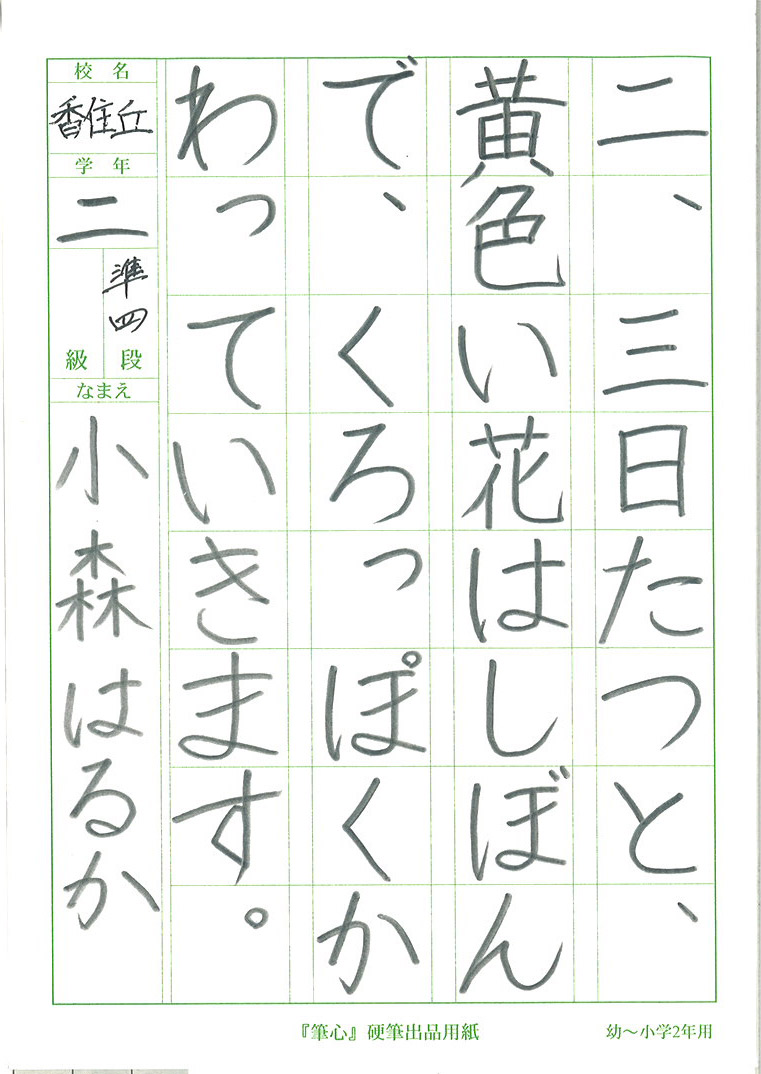 二、三日たつと、
黄色い花はしぼん
で、くろっぽくか
わっていきます。
校名
香住丘
学年
二
準四
級 段
なまえ
小森はるか
『筆心』硬筆出品用紙
幼～小学2年用